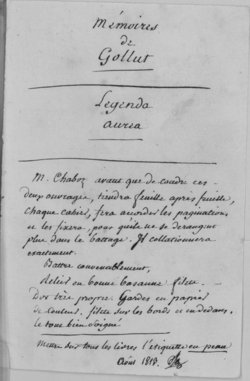 Mémoires
de
Gollut
Legenda
aurea
M. Chaboz avant que de coudre ces
deux ouvrages, tiendra feuille après feuille,
chaque cahier, fera accorder les paginations
et les fixera, pour qu'ils ne se derangent
plus dans le battage. Il collationnera
exactement.
Battre convenablement,
Relier en bonne basanne filets.
Dos très propre Gardes en papier
de couleur, filets sur les bords et en dedans,
le tout bien soigné
Mettre sur tous les livres l'étiquette en peau
Août 1818.